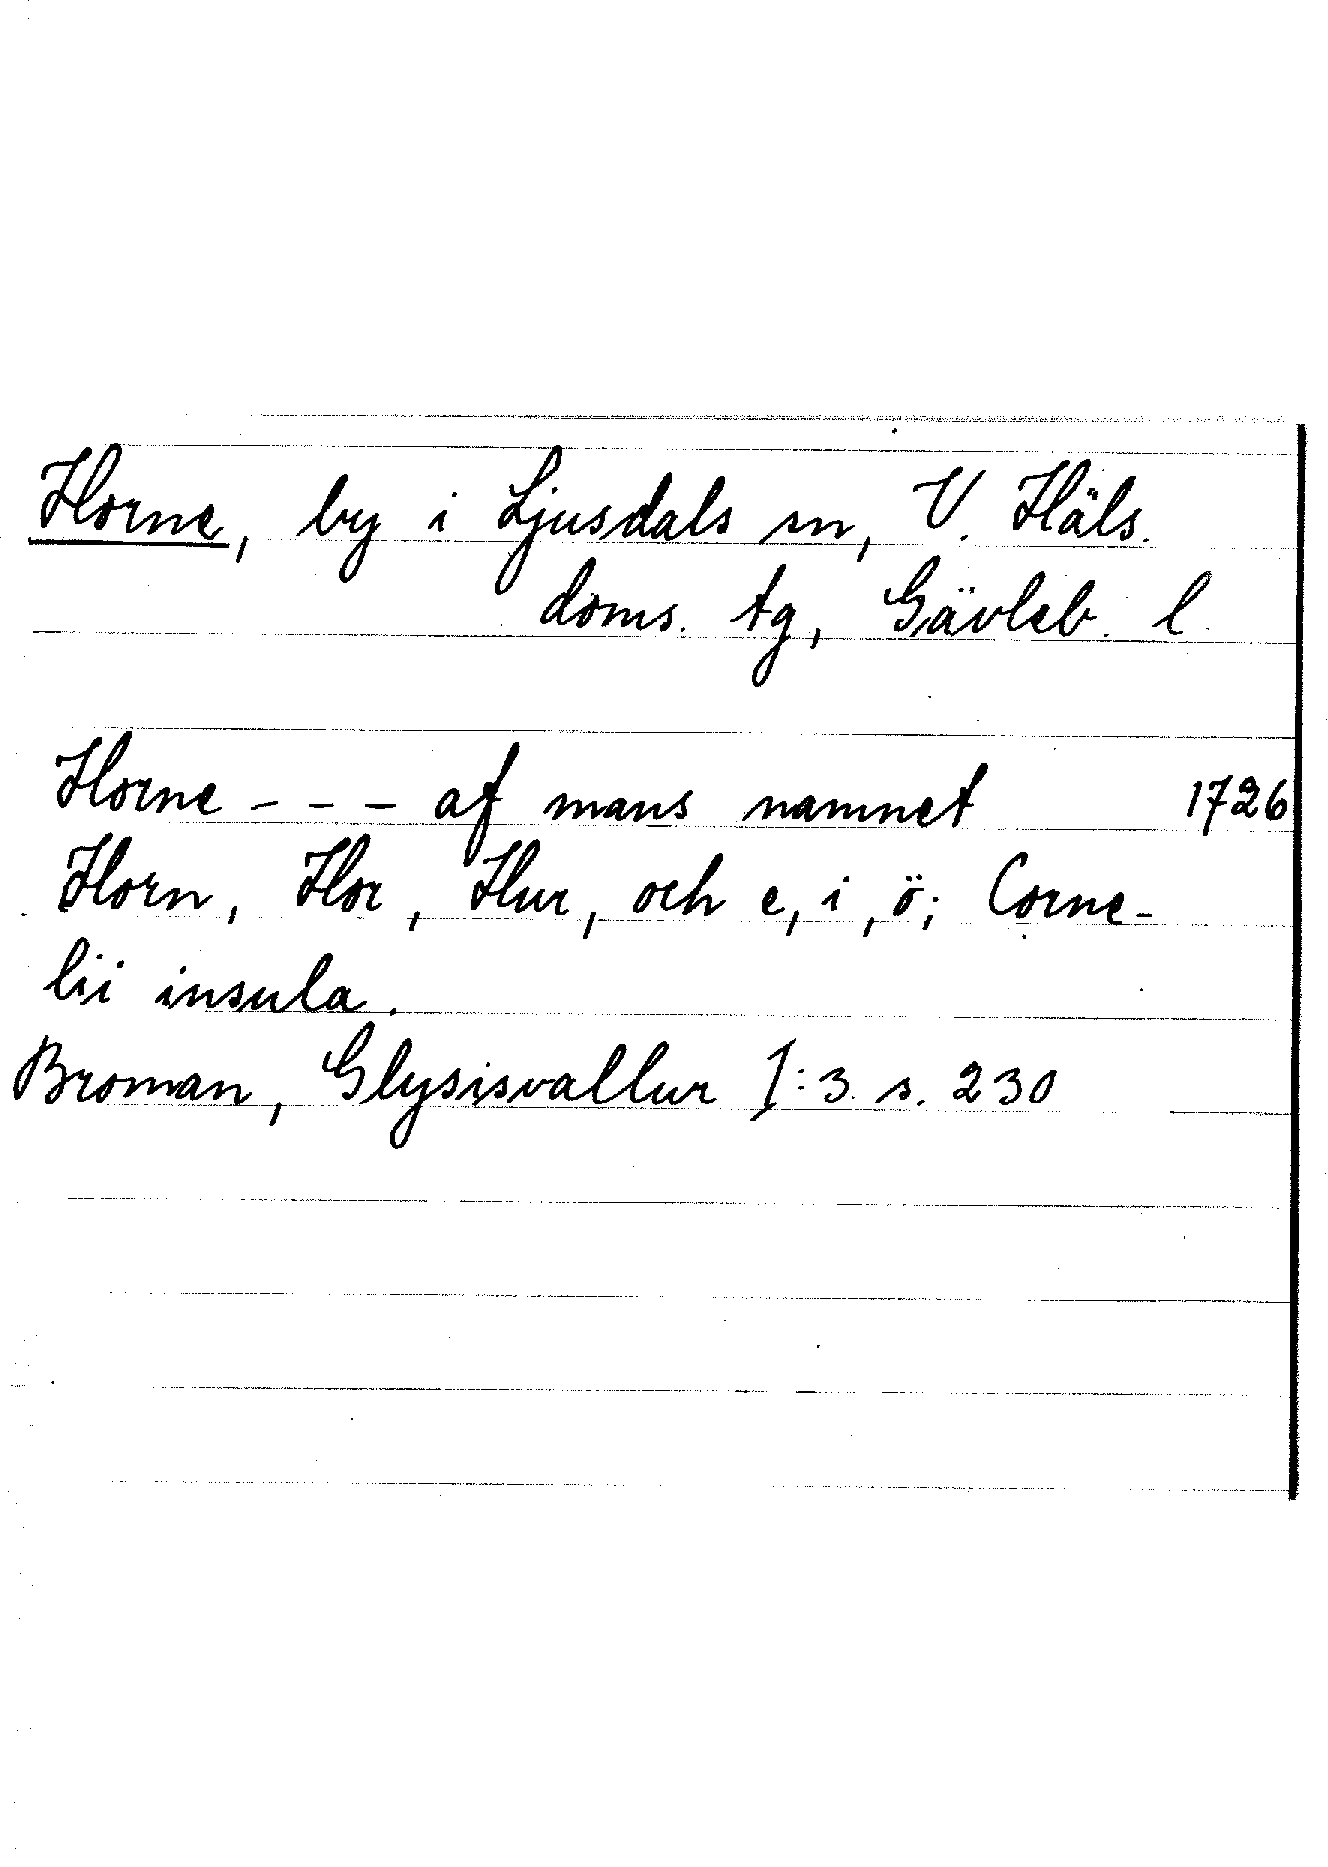 Horne, by i Ljusdals sn, V. Häls.
doms. tg, Gävleb. l
Horne - - - af mans namnet 1726
Horn, Hor, Hur, och e, i, ö; Corne-
lii insula.
Broman, Glysisvallur I:3 s. 230